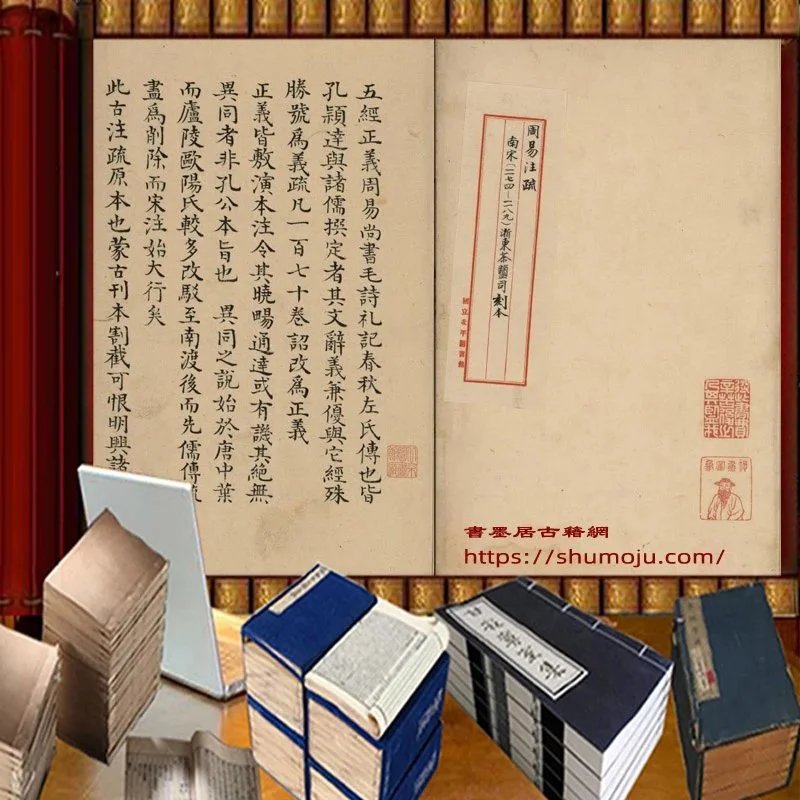 五經正義周易尚書毛詩礼記春秋左氏傳也皆
孔穎達與諸儒撰定者其文辭義兼優與它經殊
勝號爲義疏凡一百七十卷詔改爲正義
正義皆敷演本注令其曉暢通達或有譏其絕無
異同者非孔公本旨也 異同之說始於唐中葉
而廬陵歐陽氏較多改駁至南渡後而先儒傳
盡爲削除而宋注始大行矣
此古注疏原本也蒙古刊本割截可恨明興諸
周易注疏
南宋(一一七四—一一八九)浙東茶鹽司刻本
國立北平圖書館
書墨居古籍網
https://shumoju.com/